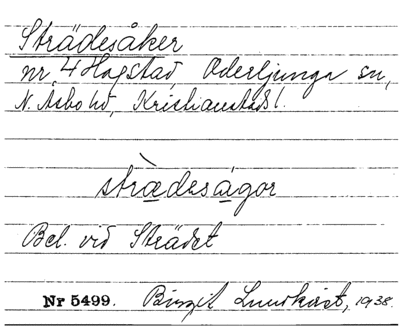 Strädesåker
nr 4 Hagstad, Oderljunga sn,
N. Åsbo hd, Kristianstads l.
strædesågor
Bel. vid Strädet
Nr 5499. Birgit Lundkvist, 1938.